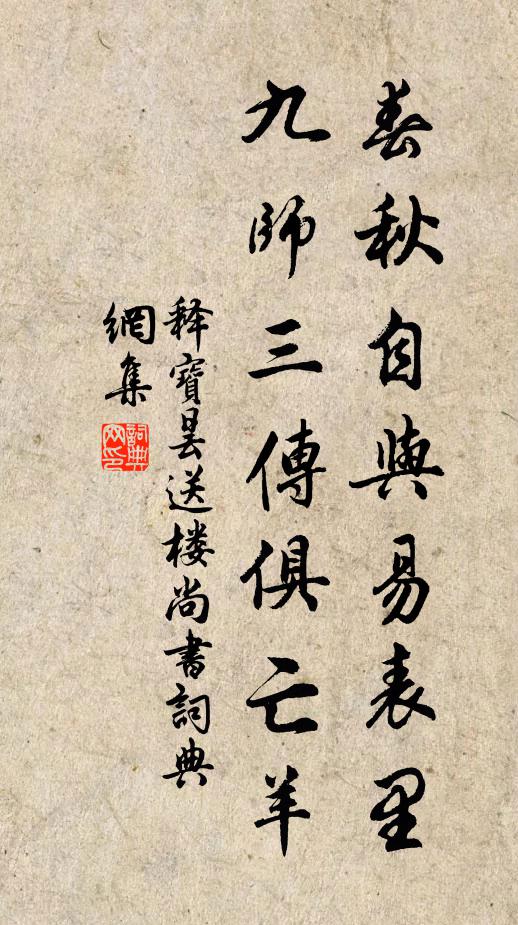 春秋自與易表里
九師三傳俱亡羊
释寶昙送楼尚書詞典
網集
詞典网印